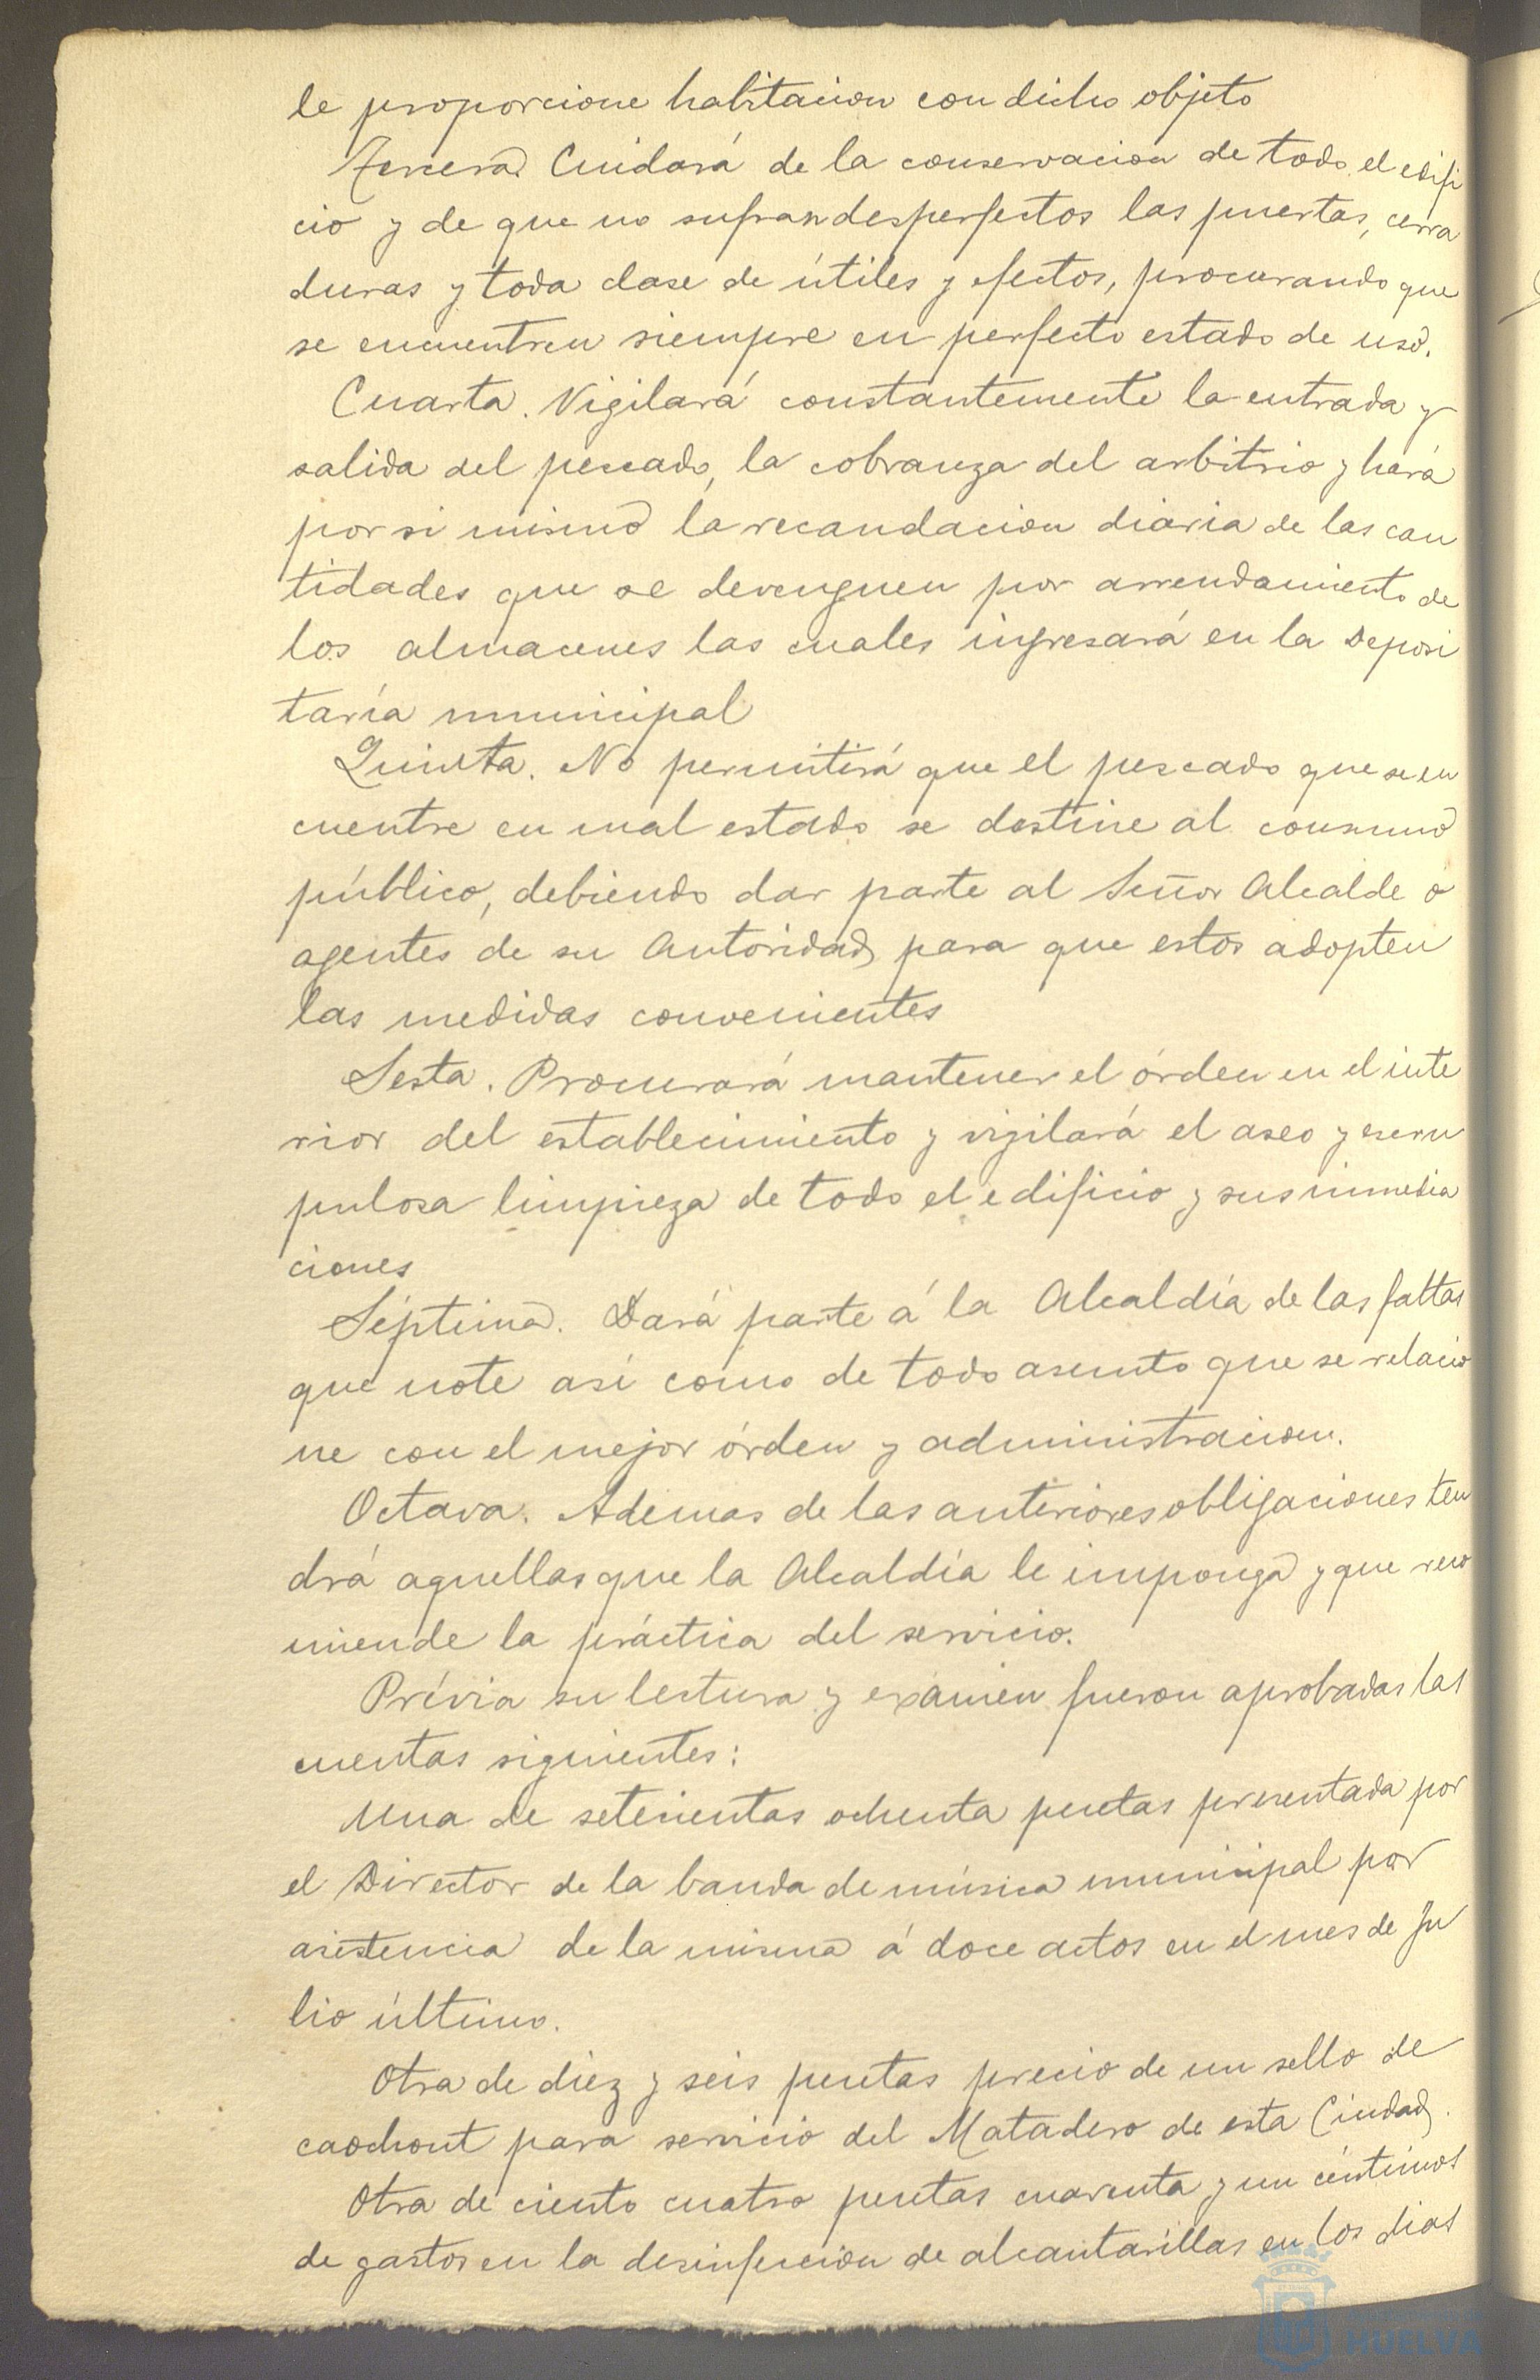 le proporcione habitacion con dicho objeto
Tercera. Cuidará de la conservacion de todo el edifi
cio y de que no sufran desperfectos las puertas, cerra
duras y toda clase de útiles y efectos, procurando que
se encuentren siempre en perfecto estado de uso.
Cuarta. Vigilará constantemente la entrada y
salida del pescado, la cobranza del arbitrio y hará
por si mismo la recaudacion diaria de las can
tidades que se devenguen por arrendamiento de
los almacenes las cuales ingresará en la Deposi
taría municipal
Quinta. No permitirá que el pescado que se en
cuentre en mal estado se destine al consumo
público, debiendo dar parte al Señor Alcalde o
agentes de su Autoridad para que estos adopten
las medidas convenientes
Sesta. Procurará mantener el órden en el inte
rior del establecimiento y vigilará el aseo y escru
pulosa limpieza de todo el edificio y sus inmedia
ciones
Séptima. Dará parte á la Alcaldía de las faltas
que note así como de todo asunto que se relacio
ne con el mejor órden y administracion.
Octava. Ademas de las anteriores obligaciones ten
drá aquellas que la Alcaldía le imponga y que reco
miende la práctica del servicio.
Prévia su lectura y exámen fueron aprobadas las
cuentas siguientes:
Una de setecientas ochenta pesetas presentada por
el Director de la banda de música municipal por
asistencia de la misma á doce actos en el mes de Ju
lio último.
Otra de diez y seis pesetas precio de un sello de
caochout para servicio del Matadero de esta Ciudad.
Otra de ciento cuatro pesetas cuarenta y un céntimos
de gastos en la desinfeccion de alcantarillas en los dias
HUELVA